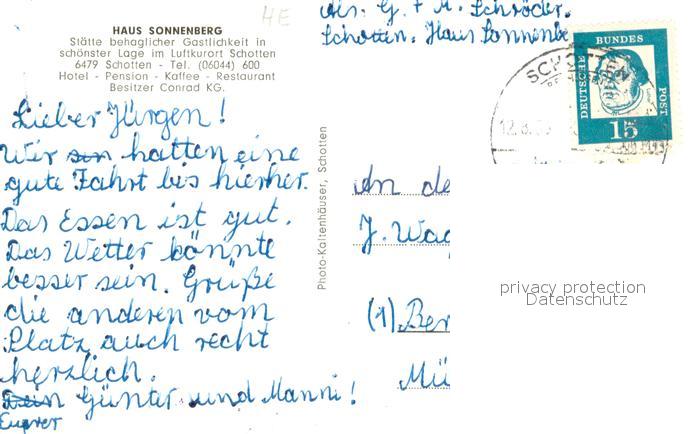 HE
HAUS SONNENBERG
Stätte behaglicher Gastlichkeit in
schönster Lage im Luftkurort Schotten
6479 Schotten - Tel. (06044) 600
Hotel - Pension - Kaffee - Restaurant
Besitzer Conrad KG.
Abs. G. + M. Schröder.
Schotten. Haus Sonnenbe
DEUTSCHE BUNDES POST
15
SCHOTTEN
Lieber Jürgen!
Wir sin hatten eine
gute Fahrt bis hierher.
Das Essen ist gut.
Das Wetter könnte
besser sein. Grüße
die anderen vom
Platz auch recht
herzlich.
Dein Günter und Manni!
Euer
Photo-Kaltenhäuser, Schotten
An de
J. Wag
(1) Ber
Mü
privacy protection
Datenschutz